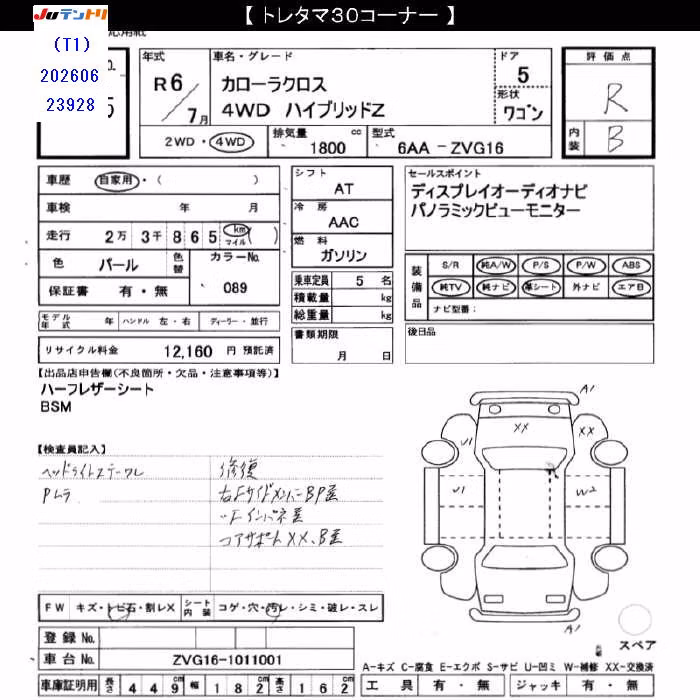 【 トレタマ30コーナー 】
Juテントリ
(T1)
202606
23928
年式
R6/7月
車名・グレード
カローラクロス
4WD ハイブリッドZ
ドア
5
形状
ワゴン
2WD・4WD
排気量
1800 cc
型式
6AA-ZVG16
評価点
R
内装
B
車歴 自家用・( )
車検 年 月
走行 2万 3千 8 6 5 km マイル ( )
色 パール 色替
カラーNo.
089
保証書 有・無
シフト
AT
冷房
AAC
燃料
ガソリン
乗車定員 5 名
積載量 kg
総重量 kg
書類期限
月 日
セールスポイント
ディスプレイオーディオナビ
パノラミックビューモニター
装備品
S/R 純A/W P/S P/W ABS
純TV 純ナビ 革シート 外ナビ エアB
ナビ型番:
後日品
モデル年式 年 ハンドル 左・右 ディーラー・並行
リサイクル料金 12,160 円 預託済
【出品店申告欄(不良箇所・欠品・注意事項等)】
ハーフレザーシート
BSM
【検査員記入】
ヘッドライトステークレ
Pムラ
修復
右FサイドメンバーBP歪
〃Fインパネ歪
コアサポートXX、B歪
A1
XX
U1
XX
U1
W2
A1
スペア
FW キズ・トビ石・割レX
シート内装 コゲ・穴・汚レ・シミ・破レ・スレ
登録 No.
車台 No. ZVG16-1011001
車庫証明用 長さ 4 4 9 幅 1 8 2 高さ 1 6 2
A-キズ C-腐食 E-エクボ S-サビ U-凹ミ W-補修 XX-交換済
工具 有・無 ジャッキ 有・無